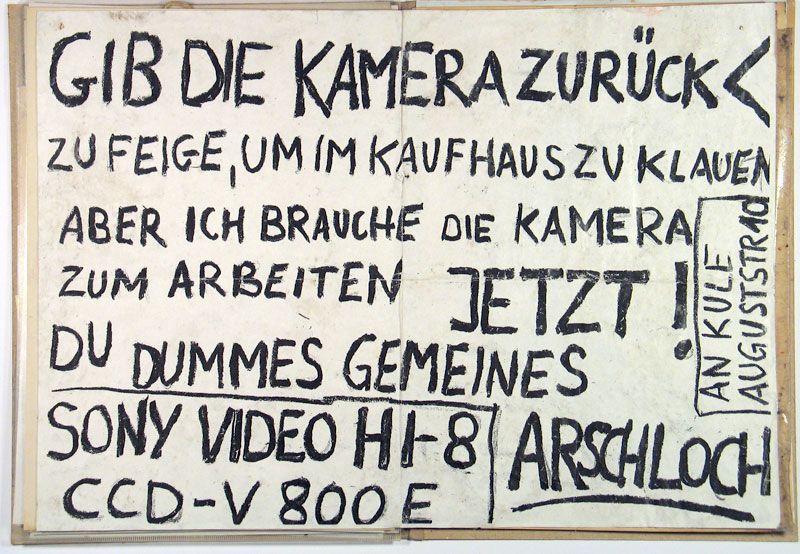 GIB DIE KAMERA ZURÜCK <
ZU FEIGE, UM IM KAUFHAUS ZU KLAUEN
ABER ICH BRAUCHE DIE KAMERA
ZUM ARBEITEN JETZT!
AN KULE
AUGUSTSTR 10
DU DUMMES GEMEINES
ARSCHLOCH
SONY VIDEO HI-8
CCD-V 800 E